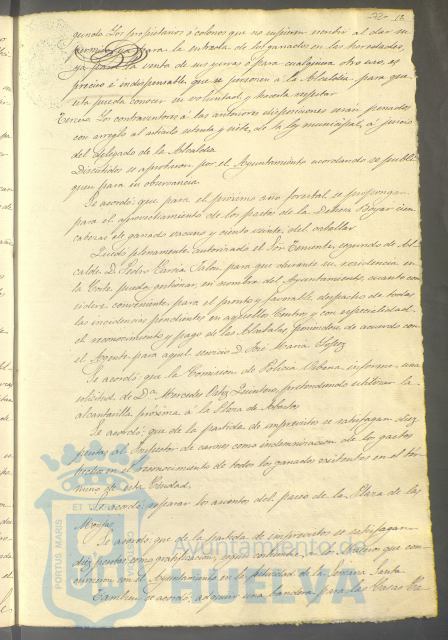 720 18
gunda Los propietarios ó colonos que no supieren escribir al dar su
permiso para la entrada de los ganados en las heredades,
ya para la venta de sus yerbas ó para cualquiera otro uso, es
preciso é indispensable que se personen á la Alcaldia para que
esta pueda conocer su voluntad y hacerla respetar
Tercera Los contraventores á las anteriores disposiciones serán penados
con arreglo al articulo setenta y siete, de la ley municipal, á juicio
del delegado de la Alcaldia
Discutidos se aprobaron por el Ayuntamiento acordando se publi
quen para su observancia.
Se acordó: que para el proximo año forestal se propongan
para el aprovechamiento de los pastos de la Dehesa Boyar cien
cabezas de ganado vacuno y ciento veinte del caballar
Quedó plenamente autorizado el Sr. Teniente segundo de Al
calde D. Pedro Garcia Jalon para que durante su residencia en
la Corte pueda gestionar, en nombre del Ayuntamiento, cuanto con
sidere conveniente para el pronto y favorable despacho de todas
las incidencias pendientes en aquellos Centros, y con especialidad
el reconocimiento y pago de las Alcabalas, poniendose de acuerdo con
el Agente para aquel servicio D. José Maria Lopez
Se acordó: que la Comision de Policia Urbana informe una
solicitud de Dª Mercedes Perez Quintero, pretendiendo utilizar la
alcantarilla próxima á la Plaza de Abastos
Se acordó: que de la partida de imprevistos se satisfagan diez
pesetas al Inspector de carnes como indemnizacion de los gastos
hechos en el reconocimiento de todos los ganados existentes en el ter
mino de esta Ciudad.
Se acordó: reparar los asientos del paseo de la Plaza de las
Monjas
Se acordó: que de la partida de imprevistos se satisfagan
diez pesetas como gratificacion, segun costumbre, á los que con
currieron con el Ayuntamiento en la festividad de la Semana Santa
Tambien se acordó adquirir una bandera para las Casas Ca-
PORTUS MARIS ET TERRAE CUSTODIA
Ayuntamiento de
HUELVA